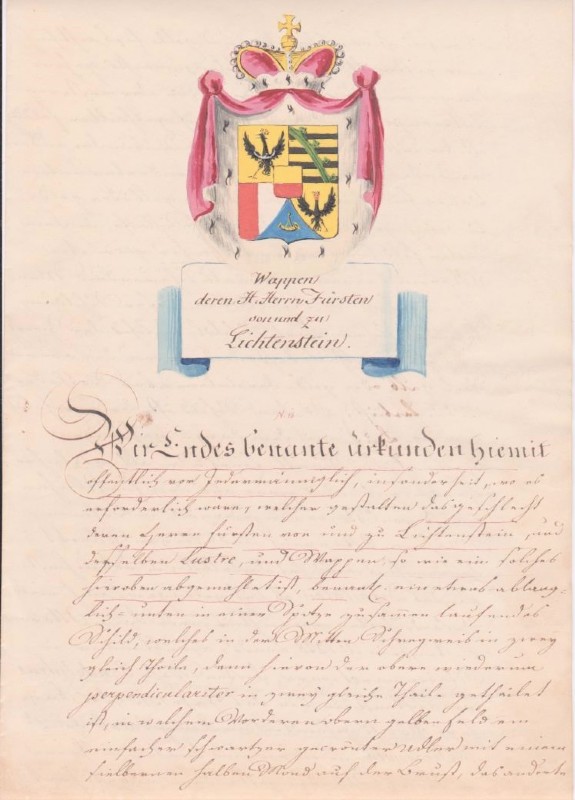 Wappen
deren H. Herrn Fürsten
von und zu
Lichtenstein.
Wir Endes benante urkunden hiemit
offentlich vor Jedermänniglich, insonderheit, wo es
erforderlich wäre, welcher gestalten das geschlecht
deren Herren Fürsten von und zu Lichtenstein, und
desselben Lustre, und Wappen, so wie ein solches
hieroben abgemahlet ist, benantl. ein etwas ablang-
lich- unten in einer Spitze zusammen laufendes
Schild, welches in der Mitten Schregweis in zwey
gleich Theile, dann hievon der obere wiederum
perpendiculariter in zwey gleiche Theile getheilet
ist, in welchem Vorderen obern gelben Feld ein
einfacher schwartzer gecrönter Adler mit einem
silbernen halben Mond auf der Brust, das anderte